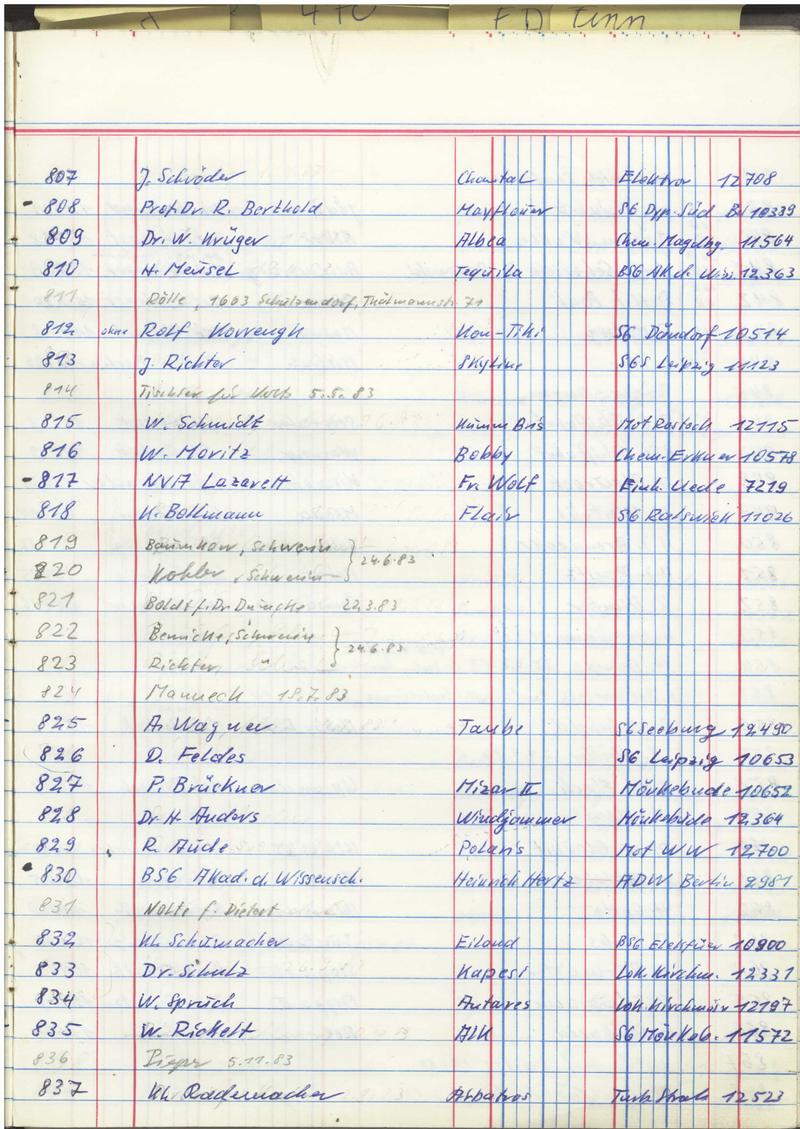 470 FD Finn
807 J. Schröder Chantal Elektror 12708
808 Prof. Dr. R. Berthold Mayflower SG Dyn. Süd Bl 10339
809 Dr. W. Krüger Albea Chem. Magdbg 11564
810 H. Meusel Tequila BSG AK d. Wiss 12363
811 Rölle, 1603 Schulzendorf, Thälmannstr. 71
812 ohne Rolf Kon-Tiki SG Dändorf 10514
813 J. Richter Skyline SGS Leipzig 11123
814 Tischler für 5.5.83
815 W. Schmidt Kümm Bris Mot Rostock 12115
816 W. Moritz Bobby Chem. Erkner 10578
817 NVA Lazarett Fr. Wolf Einh. Uede 7219
818 K. Bollmann Flair SG Ralswiek 11026
819 Schwerin
820 Kohler, Schwerin 24.6.83
821 Boldt f. Dr. 22.3.83
822 Bennicke, Schwerin
823 Richter " 24.6.83
824 Manneck 18.7.83
825 A. Wagner Taube SG Seeburg 12490
826 D. Feldes SG Leipzig 10653
827 P. Brückner Mizar II Mönkebude 10652
828 Dr. H. Anders Windjammer Mönkebude 12364
829 R. Aude Polaris Mot WW 12700
830 BSG Akad. d. Wissensch. Heinrich Hertz ADW Berlin 2981
831 Nolte f. Dietert
832 Kl. Schumacher Eiland BSG 10900
833 Dr. Schulz Kapesi Lok. Kirchm. 12331
834 W. Spruch Antares Lok. Kirchmös 12197
835 W. Rickelt Alk SG Mönkeb. 11572
836 Pieper 5.11.83
837 Kl. Rademacher Albatros Turb Strals 12523